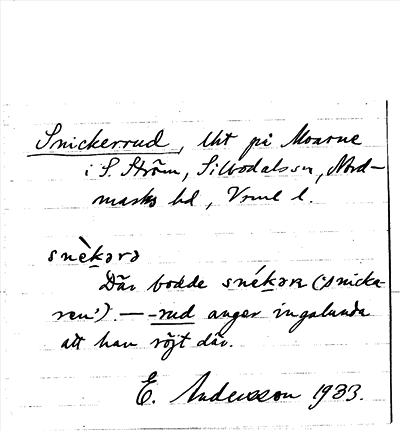 Snickerrud, lht på Moarne
i S. Ström, Silbodalssn, Nord-
marks hd, Vrml l.
snèkərə
Där bodde snékərn ('snicka-
ren'). — -rud anger ingalunda
att han röjt där.
E. Andersson 1933.